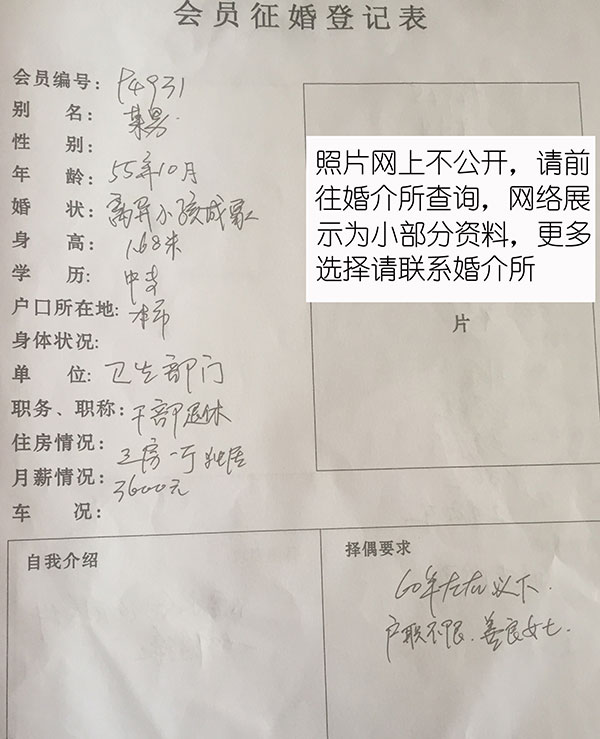 会员征婚登记表
会员编号: P4931
别 名: 某男
性 别:
年 龄: 55年10月
婚 状: 离异小孩成家
身 高: 1.68米
学 历: 中专
户口所在地: 本市
身体状况:
单 位: 卫生部门
职务、职称: 干部退休
住房情况: 三房一厅独居
月薪情况: 3600元
车 况:
照片网上不公开,请前
往婚介所查询,网络展
示为小部分资料,更多
选择请联系婚介所
片
自我介绍
择偶要求
60年左右以下.
户职不限.善良女士.